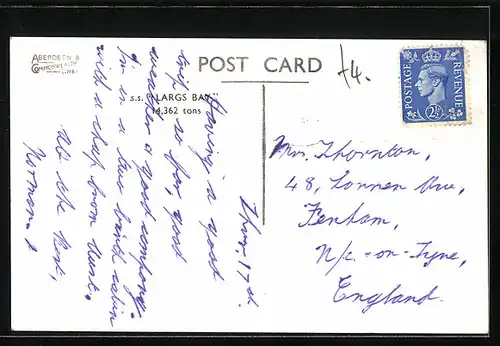 ABERDEEN &
COMMONWEALTH
LINE
POST CARD
s.s. "LARGS BAY"
14,362 tons
4.
POSTAGE
REVENUE
2½
Thur. 17th.
Having a good
trip so far, good
weather & good company.
I'm in a two berth cabin
with a chap from Hunt.
All the Best,
Norman.
Mrs. Thornton,
48, Lonnen Ave,
Fenham,
N/c-on-Tyne,
England.